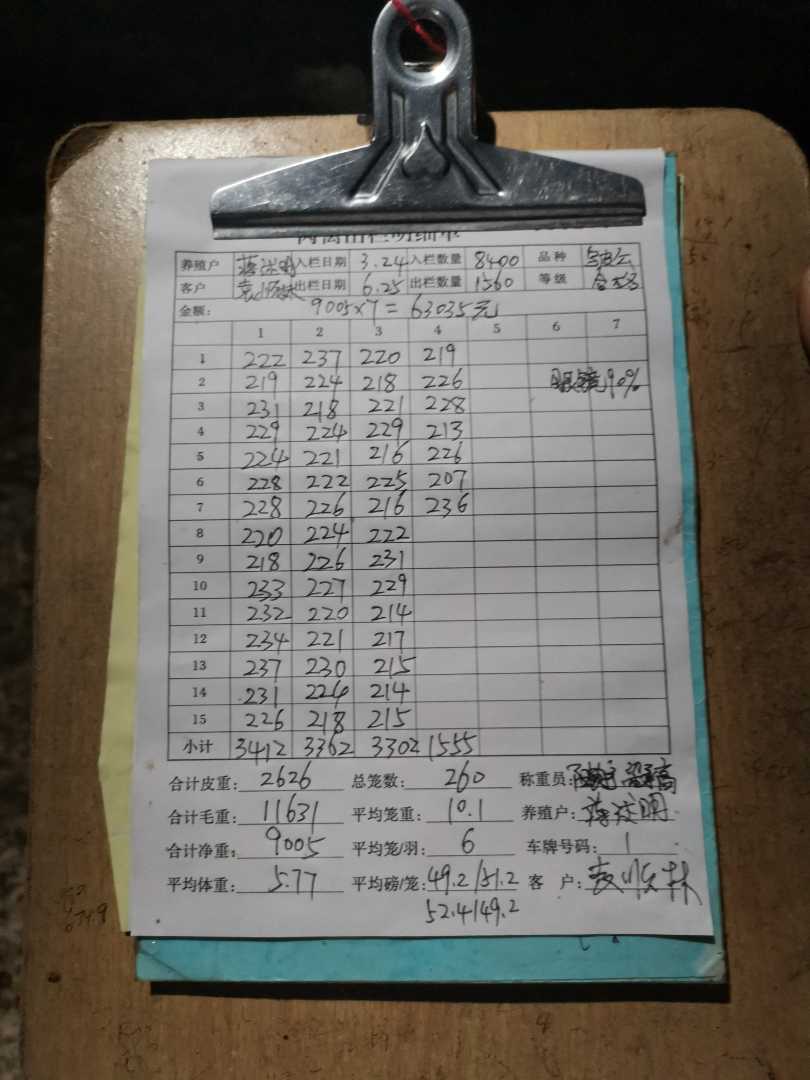 养殖户 入栏日期 3.24 入栏数量 8400 品种
客户 出栏日期 6.25 出栏数量 1560 等级
金额: 9005×7=63035元
1 2 3 4 5 6 7
1 222 237 220 219
2 219 224 218 226 眼镜90%
3 231 218 221 228
4 229 224 229 213
5 224 221 216 226
6 228 222 225 207
7 228 226 216 236
8 220 224 222
9 218 226 231
10 233 227 229
11 232 220 214
12 234 221 217
13 237 230 215
14 231 224 214
15 226 218 215
小计 3412 3362 3302 1555
合计皮重: 2626 总笼数: 260 称重员:
合计毛重: 11631 平均笼重: 10.1 养殖户:
合计净重: 9005 平均笼/羽: 6 车牌号码: 1
平均体重: 5.77 平均磅/笼: 49.2/51.2 客 户:
52.4/49.2